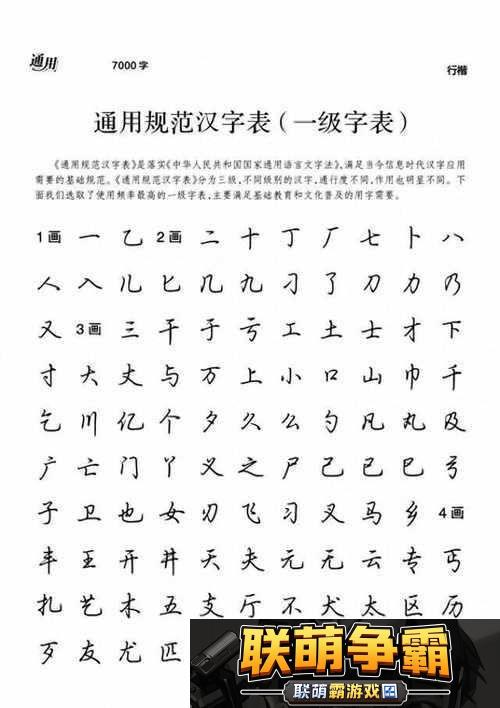 通用
7000 字
行楷
通用规范汉字表（一级字表）
《通用规范汉字表》是落实《中华人民共和国国家通用语言文字法》，满足当今信息时代汉字应用
需要的基础规范。《通用规范汉字表》分为三级，不同级别的汉字，通行度不同，作用也明显不同。下
面我们选取了使用频率最高的一级字表，主要满足基础教育和文化普及的用字需要。
1画 一 乙 2画 二 十 丁 厂 七 卜 八
人 入 儿 匕 几 九 刁 了 刀 力 乃
又 3画 三 干 于 亏 工 土 士 才 下
寸 大 丈 与 万 上 小 口 山 巾 千
乞 川 亿 个 夕 久 么 勺 凡 丸 及
广 亡 门 丫 义 之 尸 己 已 巳 弓
子 卫 也 女 刃 飞 习 叉 马 乡 4画
丰 王 开 井 天 夫 元 无 云 专 丐
扎 艺 木 五 支 厅 不 犬 太 区 历
歹 友 尤 匹
联萌争霸
联萌霸游戏网